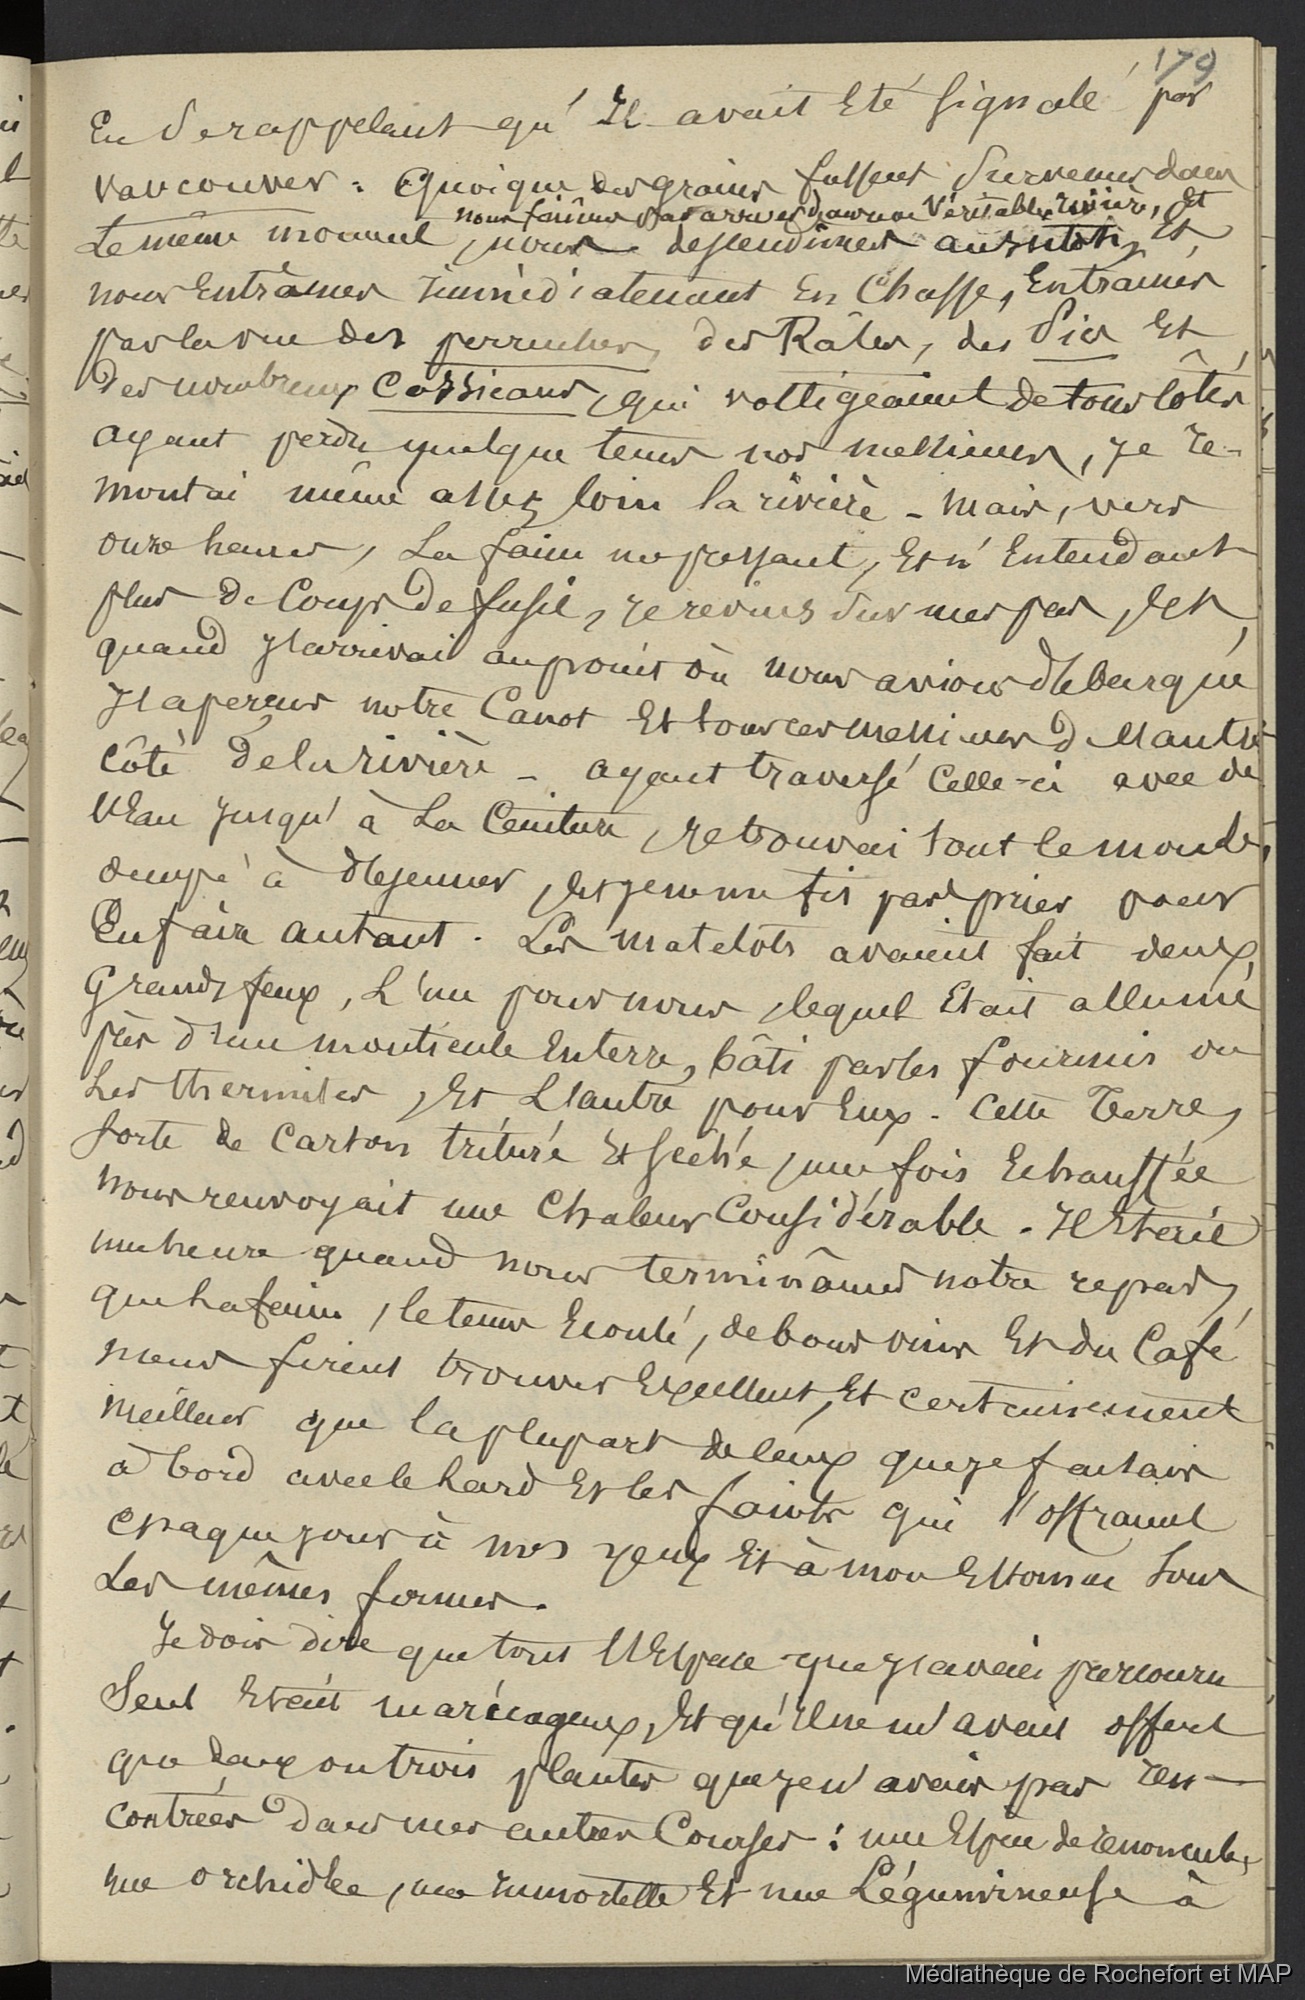 179
En se rappelant qu'il avait été signalé par
vancouver : quoique des grains fussent survenus dans
le même moment, nous descendîmes aussitôt, et
nous fûmes pas arrivés dans une véritable rivière, et
nous entrâmes immédiatement en chasse, entraînés
par la vue des perruches, des Râles, des Pies et
des nombreux Cassicans, qui voltigeaient de tous côtés
ayant perdu quelque tems nos messieurs, je re-
montai même assez loin la rivière - mais, vers
onze heures, la faim me pressant, et n'entendant
plus de coups de fusil, je revins sur mes pas, et,
quand j'arrivai au point où nous avions débarqué
j'aperçus notre canot et tous ces messieurs de l'autre
côté de la rivière - ayant traversé celle-ci avec de
l'eau jusqu'à la ceinture, je trouvai tout le monde,
occupé à déjeuner, et je ne me fis pas prier pour
en faire autant. Les matelots avaient fait deux
grands feux, l'un pour nous, lequel était allumé
près d'un monticule en terre, bâti par les fourmis ou
les thermites, et l'autre pour eux. Cette terre,
sorte de carton trituré et séché, une fois échauffée
nous renvoyait une chaleur considérable. Il était
une heure quand nous terminâmes notre repas,
que la faim, le tems écoulé, de bons vins et du café
nous firent trouver excellent, et certainement
meilleur que la plupart de ceux que je faisais
à bord avec le lard et les fayots qui s'offraient
chaque jour à mes yeux et à mon estomac sous
les mêmes formes.
Je dois dire que tout l'espace que j'avais parcouru
seul était marécageux, et qu'il ne m'avait offert
que deux ou trois plantes que je n'avais pas ren-
contrées dans mes autres courses : une espèce de renoncule,
une orchidée, une immortelle et une Légumineuse à
Médiathèque de Rochefort et MAP